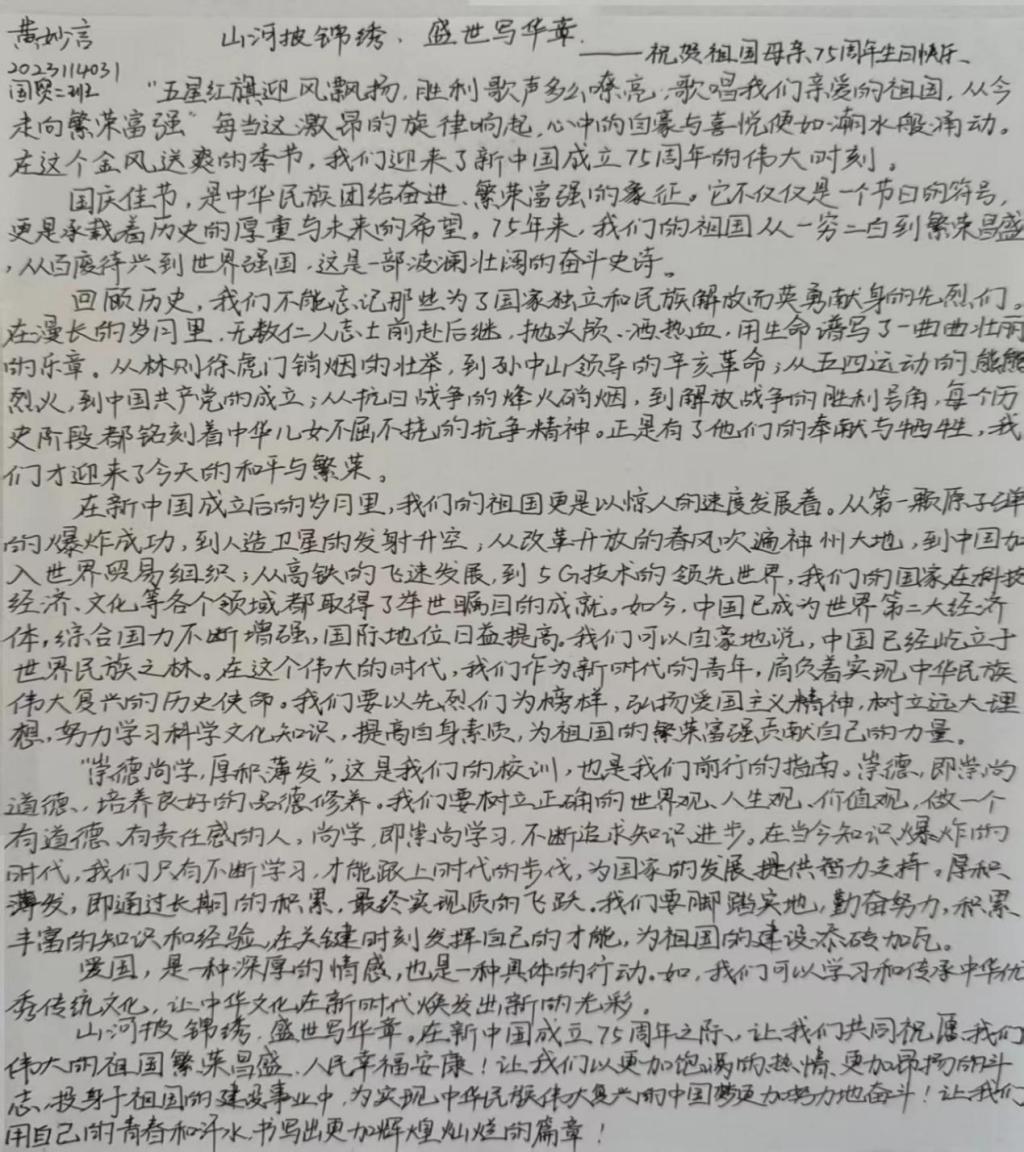 黄妙言 山河披锦绣、盛世写华章.
——祝贺祖国母亲75周年生日快乐、
2023114031
国贸二班2 "五星红旗迎风飘扬,胜利歌声多么嘹亮,歌唱我们亲爱的祖国,从今
走向繁荣富强"每当这激昂的旋律响起,心中的自豪与喜悦便如潮水般涌动。
在这个金风送爽的季节,我们迎来了新中国成立75周年的伟大时刻。
国庆佳节,是中华民族团结奋进、繁荣富强的象征。它不仅仅是一个节日的符号,
更是承载着历史的厚重与未来的希望。75年来,我们的祖国从一穷二白到繁荣昌盛
,从百废待兴到世界强国,这是一部波澜壮阔的奋斗史诗。
回顾历史,我们不能忘记那些为了国家独立和民族解放而英勇献身的先烈们。
在漫长的岁月里,无数仁人志士前赴后继,抛头颅、洒热血,用生命谱写了一曲曲壮丽
的乐章。从林则徐虎门销烟的壮举,到孙中山领导的辛亥革命;从五四运动的熊熊
烈火,到中国共产党的成立;从抗日战争的烽火硝烟,到解放战争的胜利号角,每个历
史阶段都铭刻着中华儿女不屈不挠的抗争精神。正是有了他们的奉献与牺牲,我
们才迎来了今天的和平与繁荣。
在新中国成立后的岁月里,我们的祖国更是以惊人的速度发展着。从第一颗原子弹
的爆炸成功,到人造卫星的发射升空;从改革开放的春风吹遍神州大地,到中国加
入世界贸易组织;从高铁的飞速发展,到5G技术的领先世界,我们的国家在科技
经济、文化等各个领域都取得了举世瞩目的成就。如今,中国已成为世界第二大经济
体,综合国力不断增强,国际地位日益提高。我们可以自豪地说,中国已经屹立于
世界民族之林。在这个伟大的时代,我们作为新时代的青年,肩负着实现中华民族
伟大复兴的历史使命。我们要以先烈们为榜样,弘扬爱国主义精神,树立远大理
想,努力学习科学文化知识,提高自身素质,为祖国的繁荣富强贡献自己的力量。
"崇德尚学,厚积薄发",这是我们的校训,也是我们前行的指南。崇德,即崇尚
道德、培养良好的品德修养。我们要树立正确的世界观、人生观、价值观,做一个
有道德、有责任感的人,尚学,即崇尚学习,不断追求知识、进步。在当今知识爆炸的
时代,我们只有不断学习,才能跟上时代的步伐,为国家的发展提供智力支持。厚积
薄发,即通过长期的积累,最终实现质的飞跃。我们要脚踏实地,勤奋努力,积累
丰富的知识和经验,在关键时刻发挥自己的才能,为祖国的建设添砖加瓦。
爱国,是一种深厚的情感,也是一种具体的行动.如,我们可以学习和传承中华优
秀传统文化,让中华文化在新时代焕发出新的光彩。
山河披锦绣,盛世写华章。在新中国成立75周年之际、让我们共同祝愿我们
伟大的祖国繁荣昌盛、人民幸福安康!让我们以更加饱满的热情、更加昂扬的斗
志、投身于祖国的建设事业中,为实现中华民族伟大复兴的中国梦更加努力地奋斗!让我们
用自己的青春和汗水,书写出更加辉煌灿烂的篇章!